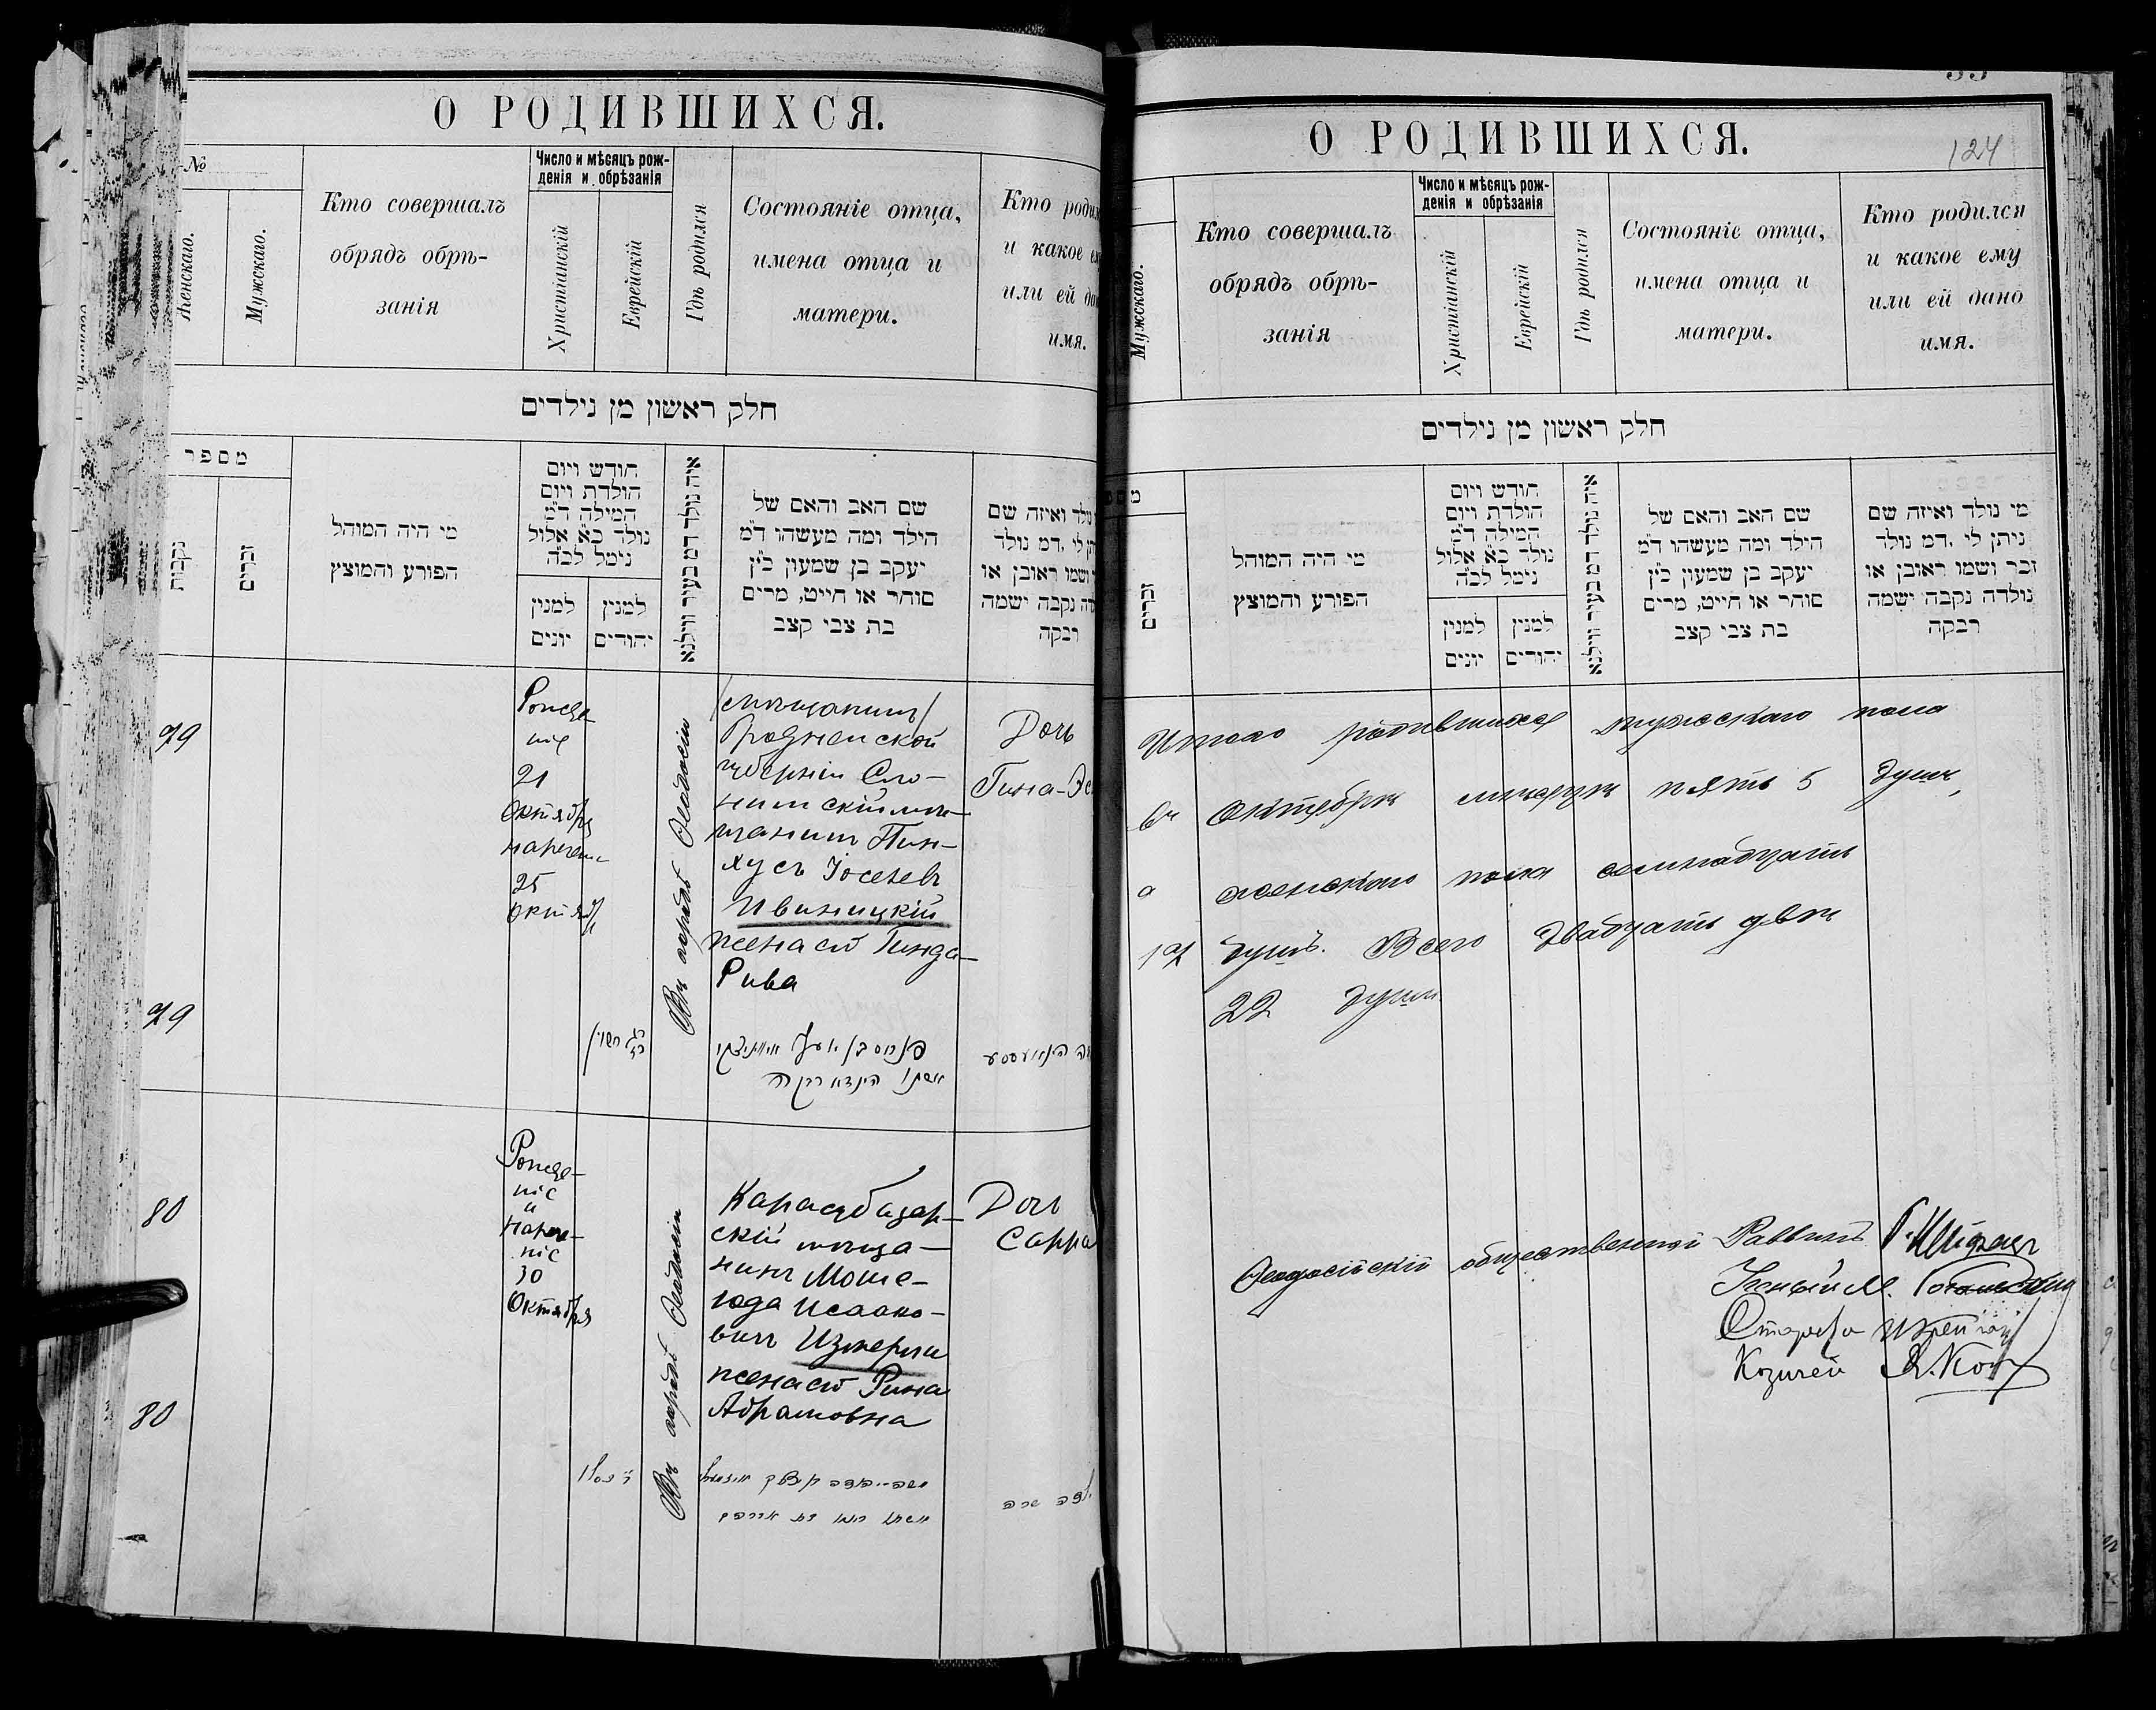 О РОДИВШИХСЯ.
№
Женскаго.
Мужскаго.
Кто совершалъ
обрядъ обрѣ-
занія
Число и мѣсяцъ рож-
денія и обрѣзанія
Христіанскій
Еврейскій
Гдѣ родился
Состояніе отца,
имена отца и
матери.
Кто
и какое
или ей
имя.
חלק ראשון מן נילדים
מספר
נקבות
זכרים
מי היה המוהל
הפורע והמוצץ
חודש ויום
הולדת ויום
המילה ד״מ
נולד כ״א אלול
נימל לכ״ה
למנין
יונים
למנין
יהודים
איה נולד דמ בעיר ווילנא
שם האב והאם של
הילד ומה מעשהו ד״מ
יעקב בן שמעון כ״ץ
סוחר או חייט, מרים
בת צבי קצב
ואיזה שם
לי .דמ נולד
ושמו ראובן או
נקבה ישמה
רבקה
79
Рожде-
ніе
21
Октября
наречен
25
Октяб
Въ городѣ Ѳеодосіи
/мѣщанинъ/
Гродненской
губерніи Сло-
нимскій мѣ-
щанинъ Пин-
хусъ Іоселев
Ивиницкій
жена его Гинда-
Рива
Дочь
79
80
Рожде-
ніе
и
нарече-
ніе
30
Октября
Въ городѣ Ѳеодосіи
Карасубазар-
скій мѣща-
нинъ Моше-
Исаако-
вичъ Измерли
жена его Рина
Абрамовна
Дочь
Сарра
80
О РОДИВШИХСЯ.
124
Мужскаго.
Кто совершалъ
обрядъ обрѣ-
занія
Число и мѣсяцъ рож-
денія и обрѣзанія
Христіанскій
Еврейскій
Гдѣ родился
Состояніе отца,
имена отца и
матери.
Кто родился
и какое ему
или ей дано
имя.
חלק ראשון מן נילדים
זכרים
מי היה המוהל
הפורע והמוצץ
חודש ויום
הולדת ויום
המילה ד״מ
נולד כ״א אלול
נימל לכ״ה
למנין
יונים
למנין
יהודים
איה נולד דמ בעיר ווילנא
שם האב והאם של
הילד ומה מעשהו ד״מ
יעקב בן שמעון כ״ץ
סוחר או חייט, מרים
בת צבי קצב
מי נולד ואיזה שם
ניתן לי .דמ נולד
זכר ושמו ראובן או
נולדה נקבה ישמה
רבקה
Итого родившихся мужскаго пола
въ Октябрѣ мѣсяцѣ пять 5 душъ,
а женскаго пола семнадцать
17 душъ. Всего двадцать двѣ
22 души
Ѳеодосійскій общественный Раввинъ
Ученый М.
Староста
Казначей